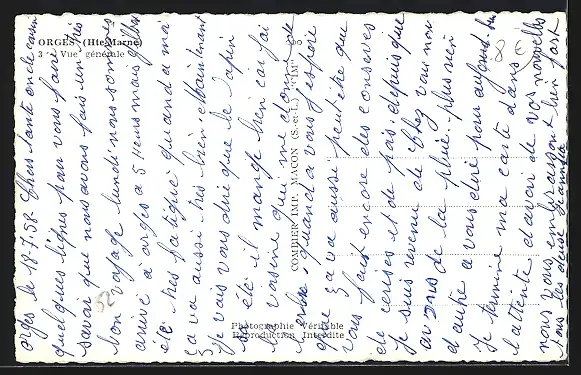 ORGES (Hte-Marne)
3 - Vue générale
COMBIER IMP. MACON (S.-et-L.) "CIM"
Photographie Véritable
Reproduction Interdite
8 €
52
orges le 18-7-58 Chers tante oncle
quelques lignes pour vous faire
savoir que nous avons fais un très
bon voyage lundi nous sommes
arrivé a orges a 5 Heures mais
été très fatigué quand a ma
ça va aussi très bien maintenant
Je vais vous dire que le lapin
été il mange bien car j'ai
la voisine que me donne
quand a vous j'espère
que ça va aussi peut être que
vous fait encore des conserves
de cerises et de pas depuis que
Je suis revenue de chez vous nou
avons de la pluie plus rien
d'autre a vous dire pour aujourd hu
Je termine ma carte dans
l'attente d'avoir de vos nouvelles
nous vous embrassons bien fort
tous les deux